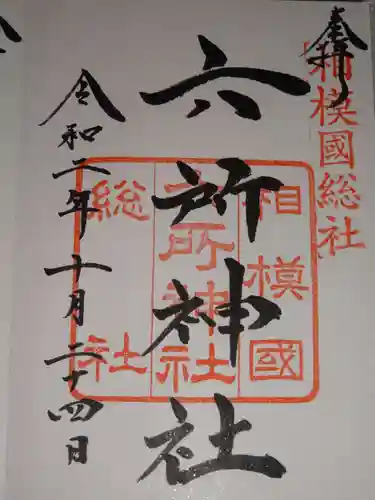 奉拝
相模國総社
六所神社
相模國
六所神社
総社
令和二年十月二十四日